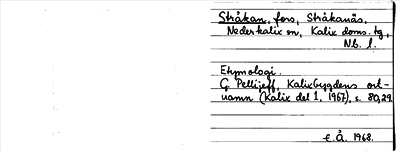 Stråkan, fors, Stråkanäs,
Nederkalix sn, Kalix doms. tg,
Nb. l.
Etymologi.
G. Pellijeff, Kalixbygdens ort-
namn (Kalix del 1, 1967), s. 80, 29.
E.Å. 1968.